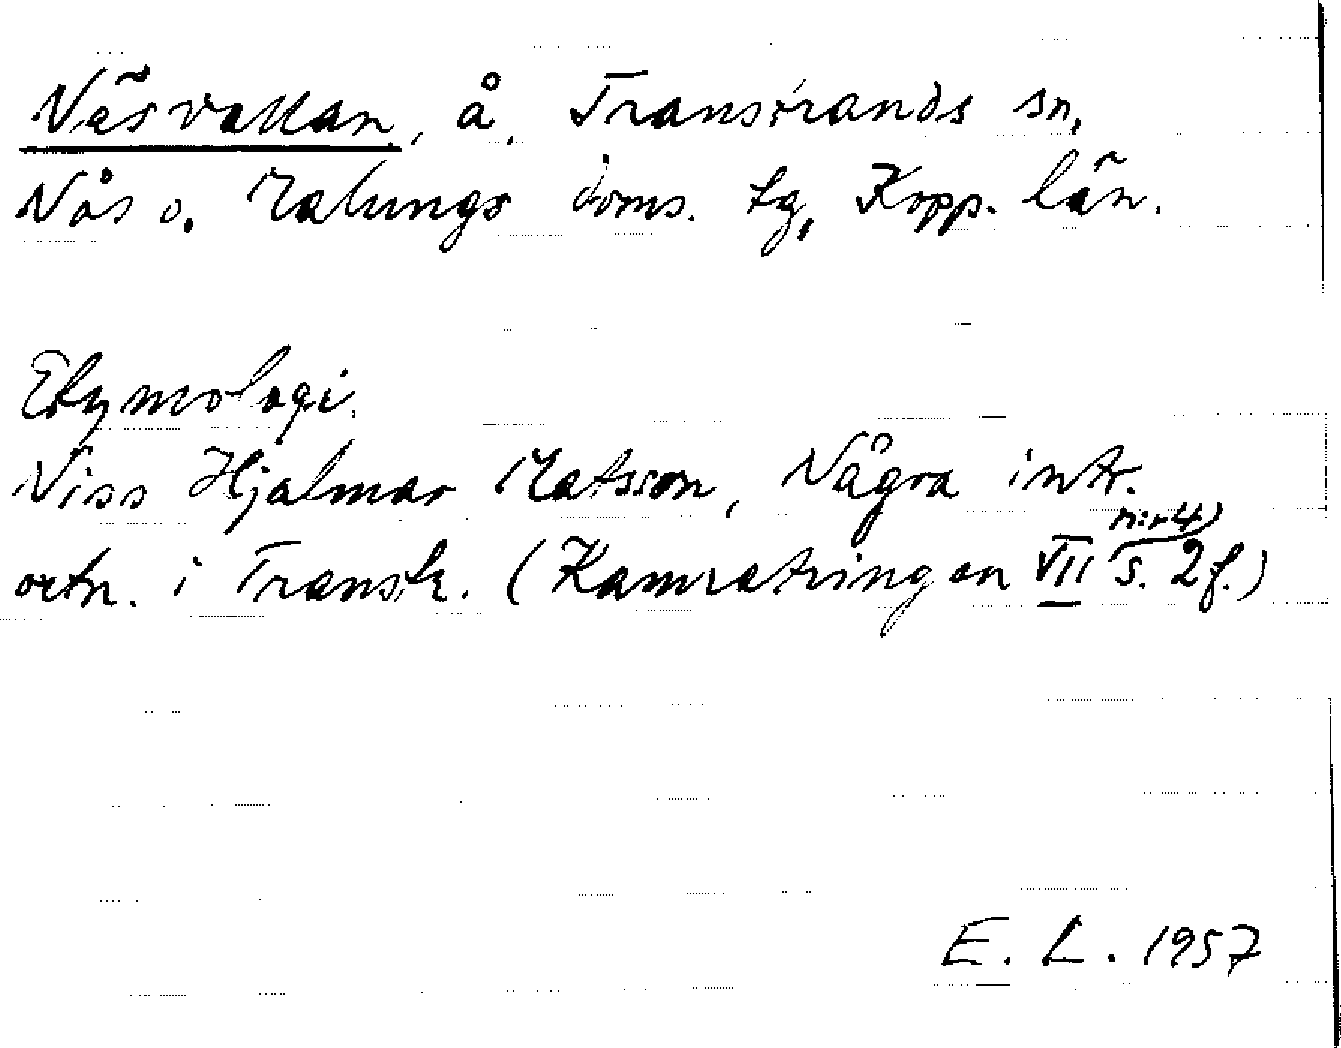 Näsvallan, å, Transtrands sn,
Nås o. Malungs doms. tg, Kopp. län.
Etymologi.
Niss Hjalmar Matsson, Några intr.
ortn. i Transtr. (Kamratringen VII nr 4) s. 2f.)
E. L. 1957